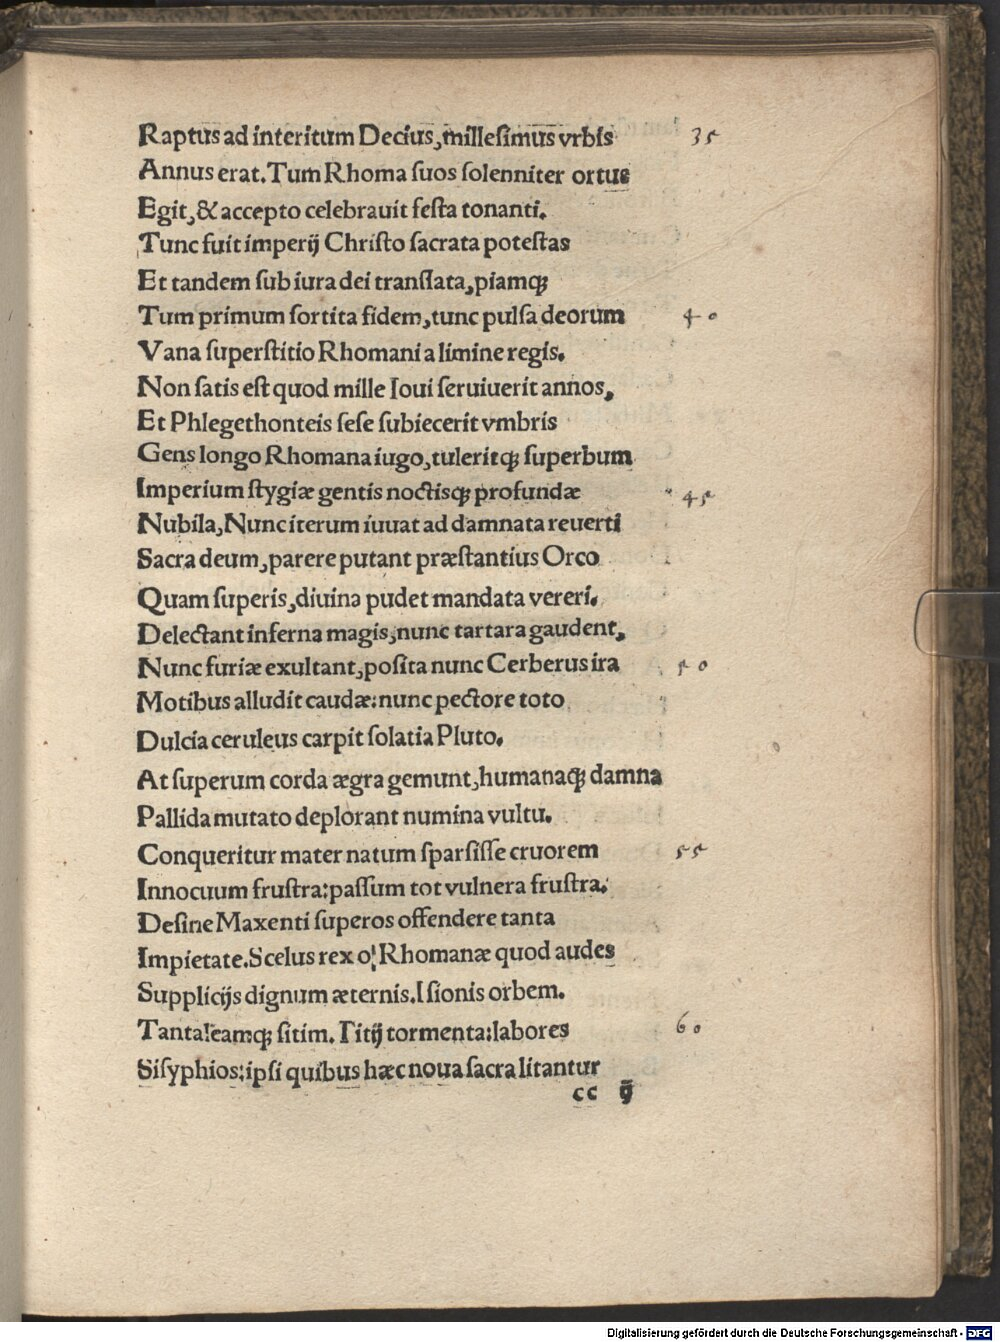 Raptus ad interitum Decius, millesimus vrbis 35
Annus erat. Tum Rhoma suos solenniter ortus
Egit, & accepto celebrauit festa tonanti.
Tunc fuit imperij Christo sacrata potestas
Et tandem sub iura dei translata, piamqꝫ
Tum primum sortita fidem, tunc pulsa deorum 40
Vana superstitio Rhomani a limine regis.
Non satis est quod mille Ioui seruiuerit annos,
Et Phlegethonteis sese subiecerit vmbris
Gens longo Rhomana iugo, tuleritqꝫ superbum
Imperium stygiæ gentis noctisqꝫ profundæ 45
Nubila, Nunc iterum iuuat ad damnata reuerti
Sacra deum, parere putant præstantius Orco
Quam superis, diuina pudet mandata vereri.
Delectant inferna magis, nunc tartara gaudent,
Nunc furiæ exultant, posita nunc Cerberus ira 50
Motibus alludit caudæ: nunc pectore toto
Dulcia ceruleus carpit solatia Pluto.
At superum corda ægra gemunt, humanaqꝫ damna
Pallida mutato deplorant numina vultu.
Conqueritur mater natum sparsisse cruorem 55
Innocuum frustra: passum tot vulnera frustra.
Desine Maxenti superos offendere tanta
Impietate. Scelus rex o! Rhomanæ quod audes
Supplicijs dignum æternis. Isionis orbem.
Tantaleamqꝫ sitim. Titij tormenta: labores 60
Sisyphios: ipsi quibus hæc noua sacra litantur
cc ij
Digitalisierung gefördert durch die Deutsche Forschungsgemeinschaft - DFG